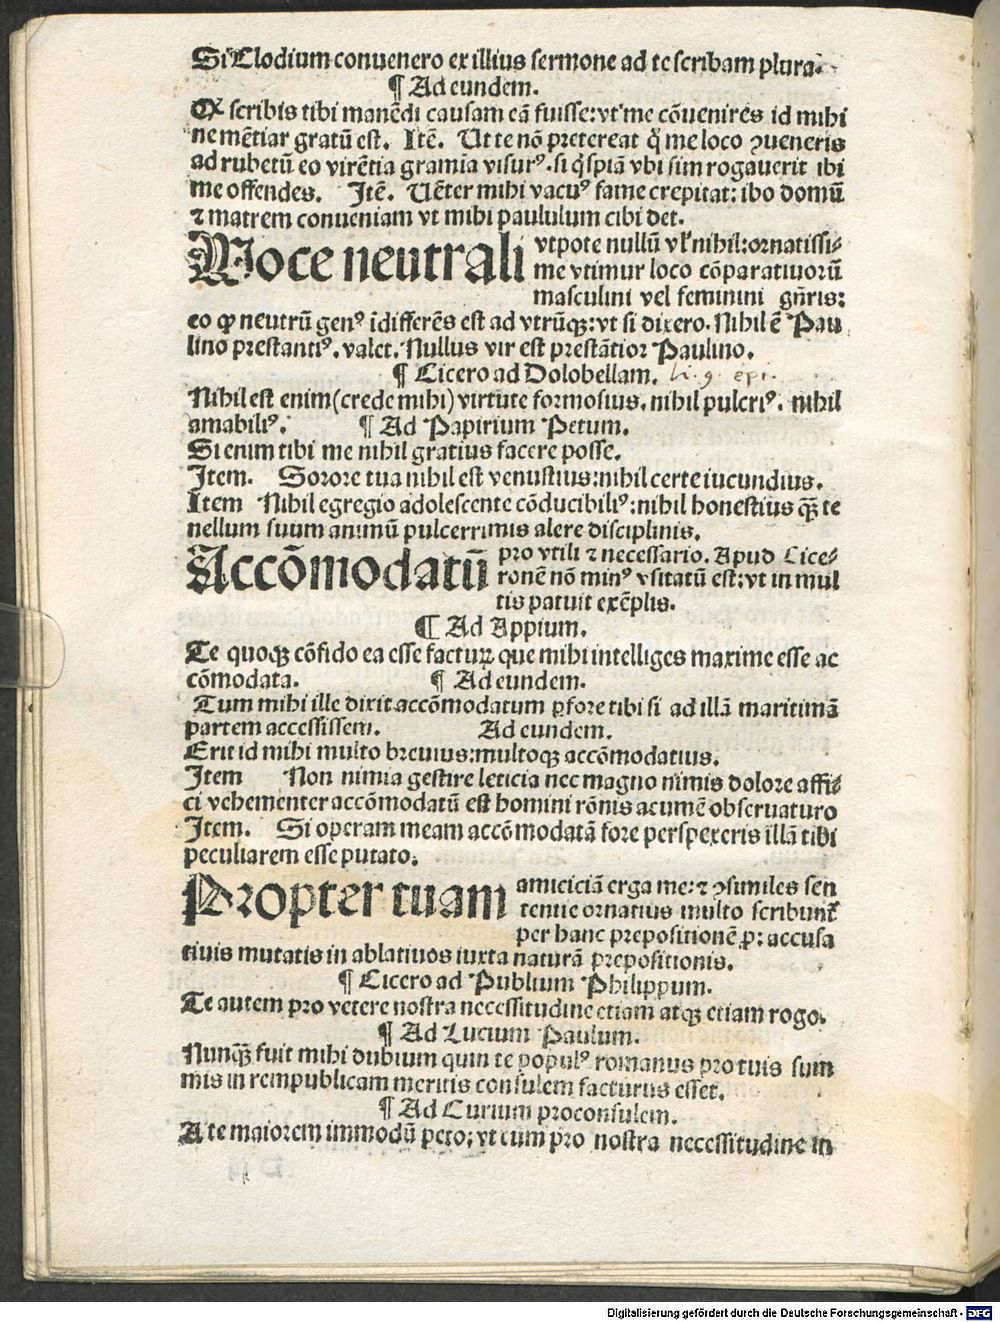 Si Clodium conuenero ex illius sermone ad te scribam plura.
¶ Ad eundem.
Qꝫ scribis tibi manēdi causam eā fuisse: vt me cōuenires id mihi
ne mētiar gratū est. Itē. Ut te nō pretereat q̇ me loco ꝯueneris
ad rubetū eo virētia gramīa visurꝰ. si q̇spiā vbi sim rogauerit ibi
me offendes. Itē. Uēter mihi vacuꝰ fame crepitat: ibo domū
⁊ matrem conueniam vt mihi paululum cibi det.
Voce neutrali vtpote nullū vl̛ nihil: ornatissi⸗
me vtimur loco cōparatiuorū
masculini vel feminini gn̄ris:
eo ꝙ neutrū genꝰ īdifferēs est ad vtrūqꝫ: vt si dixero. Nihil ē Pau
lino prestantiꝰ. valet. Nullus vir est prestātior Paulino.
¶ Cicero ad Dolobellam. li. 9. epi.
Nihil est enim (crede mihi) virtute formosius. nihil pulcriꝰ. nihil
amabiliꝰ. ¶ Ad Papirium Petum.
Si enim tibi me nihil gratius facere posse.
Item. Sorore tua nihil est venustius: nihil certe iucundius.
Item Nihil egregio adolescente cōducibiliꝰ: nihil honestius qꝫ̄ te
nellum suum animū pulcerrimis alere disciplinis.
Accōmodatū pro vtili ⁊ necessario. Apud Cice⸗
ronē nō minꝰ vsitatū est: vt in mul
tis patuit exēplis.
¶ Ad Appium.
Te quoqꝫ cōfido ea esse facturꝝ que mihi intelliges maxime esse ac
cōmodata. ¶ Ad eundem.
Tum mihi ille dixit accōmodatum ꝑfore tibi si ad illā maritimā
partem accessissem. Ad eundem.
Erit id mihi multo breuius: multoqꝫ accōmodatius.
Item Non nimia gestire leticia nec magno nimis dolore affi⸗
ci vehementer accōmodatū est homini rōnis acumē obseruaturo
Item. Si operam meam accōmodatā fore perspexeris illā tibi
peculiarem esse putato.
Propter tuam amiciciā erga me: ⁊ ꝯsimiles sen
tentie ornatius multo scribunt̛
per hanc prepositionē ꝓ: accusa
tiuis mutatis in ablatiuos iuxta naturā prepositionis.
¶ Cicero ad Publium Philippum.
Te autem pro vetere nostra necessitudine etiam atqꝫ etiam rogo.
¶ Ad Lucium Paulum.
Nunqꝫ̄ fuit mihi dubium quin te populꝰ romanus pro tuis sum
mis in rempublicam meritis consulem facturus esset.
¶ Ad Curium proconsulem.
A te maiorem immodū peto; vt cum pro nostra necessitudine in
Digitalisierung gefördert durch die Deutsche Forschungsgemeinschaft - DFG